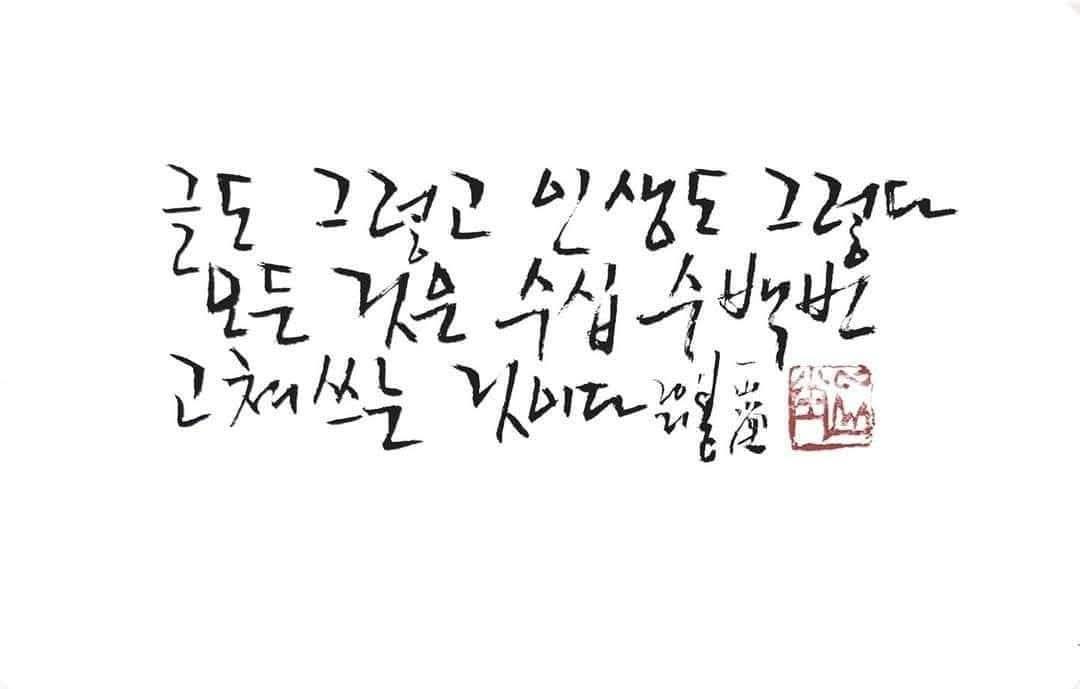 글도 그렇고 인생도 그렇다
모든 것은 수십 수백번
고쳐쓰는 것이다